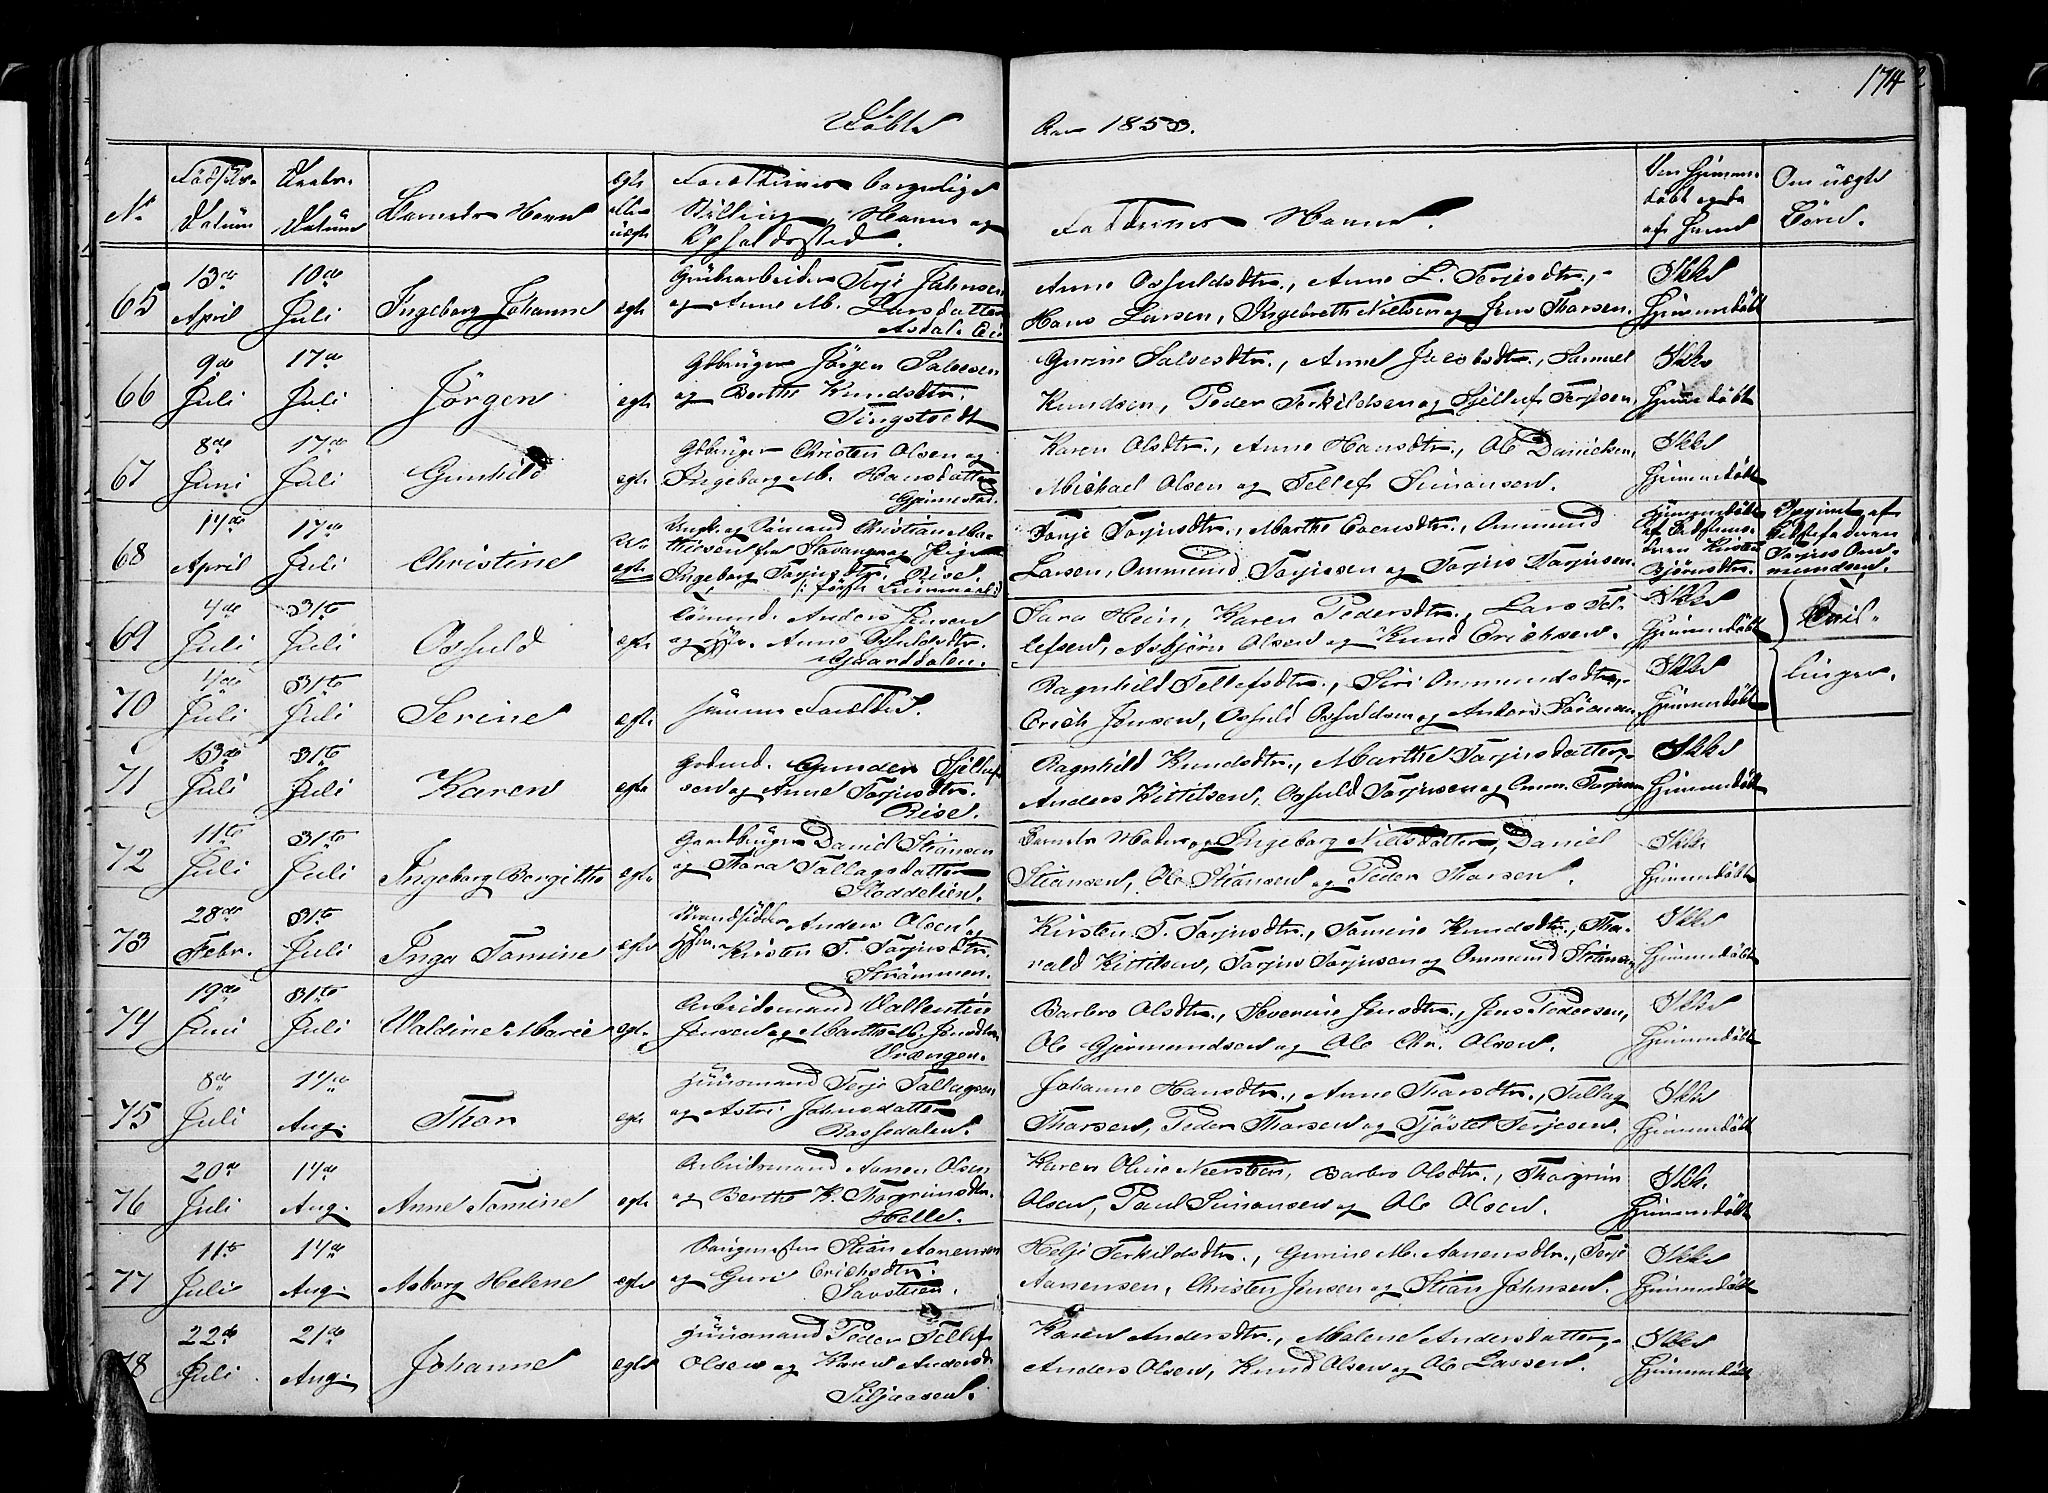 174
Døbte
Aar 1853.
No
Fødsels-
Datum
Daabs-
Datum
Barnets Navn
ægte
eller
uægte
Forældrenes borgerlige
Stilling, Navne og
Opholdssted.
Faddernes Navne.
Om hjemme-
døbt og da
af hvem
Om uægte
Børn.
65
13de
April
10de
Juli
Ingeborg Johanne
egte
Grubearbeider Terje Johnsen
og Anne M. Larsdatter
Asdal. Eie
Anne Osfuldsdtr., Anne L. Terjesdtr.,
Hans Larsen, Ingebreth Nielsen og Jens Thorsen.
Ikke
Hjemmedøbt
66
9de
Juli
17de
Juli
Jörgen
egte
Gdbruger Jörgen Salvesen
og Berthe Knudsdtr.
Tingstvedt
Gurine Salvesdtr., Anne Jacobsdtr., Samuel
Knudsen, Peder Terkildsen og Sjellef Terjesen,
Ikke
Hjemmedøbt
67
8de
Juni
17de
Juli
Gunhild
egte
Gdbruger Christen Olsen og
Ingeborg M. Hansdatter
Gjennestad.
Karen Olsdtr., Anne Hansdtr., Ole Danielsen,
Michael Olsen og Tellef Simonsen.
Ikke
Hjemmedøbt
68
14de
April
17de
Juli
Christine
U-
egte
Ungk. og Sömand Christian Ma-
thiesen fra Stavanger og Pigen
Ingeborg Torjusdtr. Risel.
Tonje Torjusdtr., Marthe Evensdtr., Ommund
Larsen, Ommund Torjusen og Torjus Torjusen.
Hjemmedøbt
af
Kirsten
Bjørnsdtr.
Opgivet af
Torjus Om-
mundsen.
69
4de
Juli
31te
Juli
Osfuld
egte
Sömand Anders Jensen
og Hstr. Anne Osfuldsdtr.
Gaarddalen.
Sara Hein, Karen Pedersdtr., Lars Tel-
lefsen, Asbjörn Olsen og Knud Erichsen.
Ikke
Hjemmedøbt
Tvil-
70
4de
Juli
31te
Juli
Serine
egte
samme Forældre.
Ragnhild Tellefsdtr., Siri Ommundsdtr.,
Erich Jensen, Osfuld Osfuldsen og Anders Sörensen
Ikke
Hjemmedøbt
linger.
71
13de
Juli
31te
Juli
Karen
egte
Gunder Sjellef-
sen og Anne Torjusdtr.
Risel.
Ragnhild Knudsdtr., Marthe Torjusdatter,
Anders Kittilsen, Osfuld Torjusen og Omm. Torjusen
Ikke
Hjemmedøbt
72
11te
Juli
31te
Juli
Ingeborg Bergitha
egte
Gaardbruger David Stiansen
og Thora Tallagsdatter
Stoddelien.
Barnets Moder og Ingeborg Nielsdatter, Daniel
Stiansen, Ole Stiansen og Peder Thorsen.
Ikke
Hjemmedøbt
73
28de
Febr.
31te
Juli
Inga Tomine
egte
Strandsidder Anders Olsen og
Hstr. Kirsten T. Torjusdtr.
Strömmen.
Kirsten T. Torjusdtr., Tomine Knudsdtr., Tho-
rald Kittilsen, Torjus Torjusen og Ommund
Ikke
Hjemmedøbt
74
19de
Juni
31te
Juli
Valdine Marie
egte
Arbeidsmand Vallentin
Jensen og Marthe M. Jensdtr.
Vrængen.
Barbro Olsdtr., Severine Jensdtr., Jens Pedersen,
Ole Gjermundsen og Ole Chr. Olsen.
Ikke
Hjemmedøbt
75
8de
Juli
14de
Aug.
Thor
egte
Huusmand Terje Tallagsen
og Astri Johnsdatter
Rossedalen.
Johanne Hansdtr., Anne Thorsdtr., Tallag
Thorsen, Peder Thorsen og Tjöstel Terjesen.
Ikke
Hjemmedøbt
76
20de
Juli
14de
Aug.
Anne Tomine
egte
Arbeidsmand Aanen Olsen
og Berthe K. Thorgrimsdtr.
Helle.
Karen Oline Neersteen, Barbro Olsdtr., Thorgrim
Olsen, Poul Simonsen og Ole Olsen.
Ikke
Hjemmedøbt
77
11te
Juli
14de
Aug.
Asborg Helene
egte
Stian Aanensen
og Guri Erichsdtr.
Savstuen.
Helje Terkildsdtr., Gurine M. Aanensdtr., Terje
Aanensen, Christen Jensen og Stian Johnsen.
Ikke
Hjemmedøbt
78
22de
Juli
21de
Aug.
Johanne
egte
Huusmand Peder Tellef
Olsen og Karen Andersdtr.
Siljeaasen.
Karen Andersdtr., Malene Andersdatter,
Anders Olsen, Knud Olsen og Ole Lassen.
Ikke
Hjemmedøbt